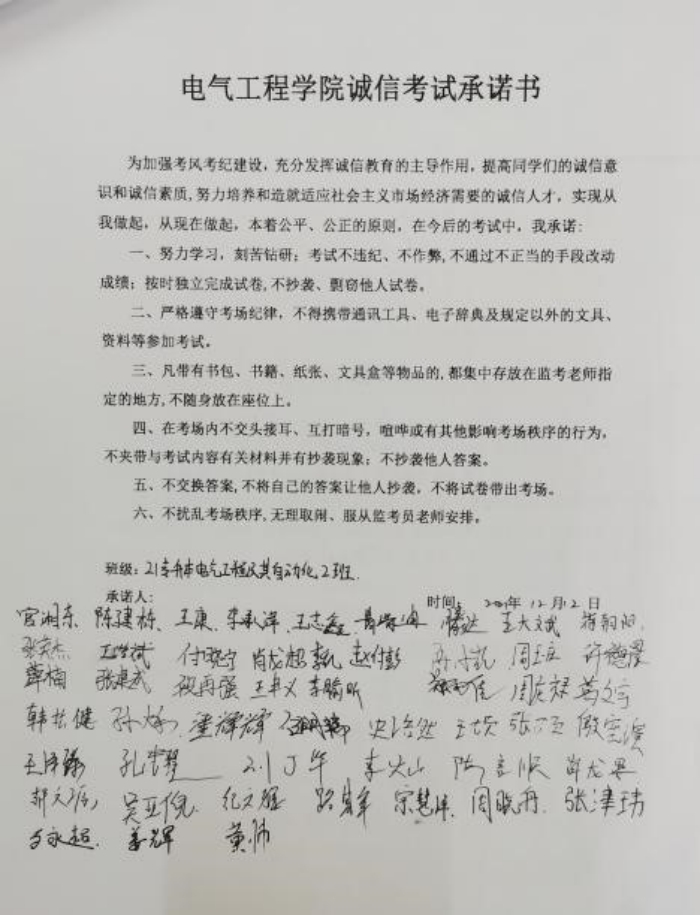 电气工程学院诚信考试承诺书
为加强考风考纪建设，充分发挥诚信教育的主导作用，提高同学们的诚信意
识和诚信素质,努力培养和造就适应社会主义市场经济需要的诚信人才，实现从
我做起，从现在做起，本着公平、公正的原则，在今后的考试中，我承诺:
一、努力学习，刻苦钻研；考试不违纪、不作弊,不通过不正当的手段改动
成绩；按时独立完成试卷,不抄袭、剽窃他人试卷。
二、严格遵守考场纪律，不得携带通讯工具、电子辞典及规定以外的文具、
资料等参加考试。
三、凡带有书包、书籍、纸张、文具盒等物品的,都集中存放在监考老师指
定的地方,不随身放在座位上。
四、在考场内不交头接耳、互打暗号，喧哗或有其他影响考场秩序的行为，
不夹带与考试内容有关材料并有抄袭现象；不抄袭他人答案。
五、不交换答案,不将自己的答案让他人抄袭，不将试卷带出考场。
六、不扰乱考场秩序,无理取闹、服从监考员老师安排。
班级: 21专升本电气工程及其自动化2班.
承诺人: 时间: 2021年 12月12日
宫湘东 陈建栋 王康 王志鑫 腾达 王大斌
张建武 付晓宁 肖龙超 赵付彭 周玉立 许德晟
薛楠 段再强 李瑜昕 葛文宇
韩兆健 王坝
刘丁华 李火山
吴亚倪 纪文雄 周晓冉 张津玮
姜辉 黄帅